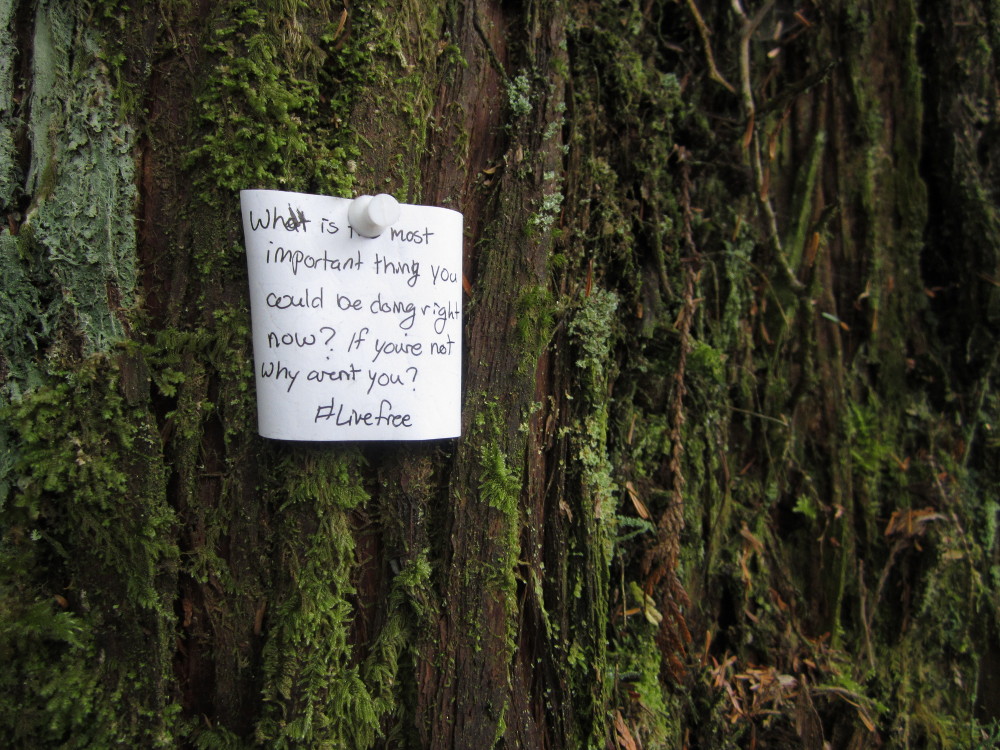 What is most
important thing you
could be doing right
now? If youre not
why arent you?
#Livefree